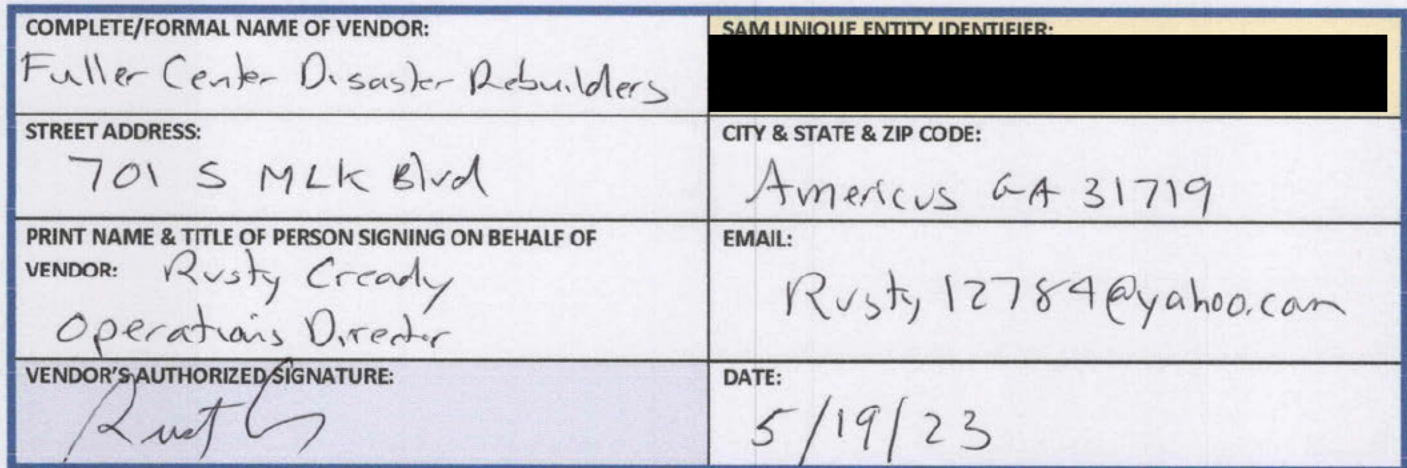 COMPLETE/FORMAL NAME OF VENDOR:
Fuller Center Disaster Rebuilders
SAM UNIQUE ENTITY IDENTIFIER:
STREET ADDRESS:
701 S MLK Blvd
CITY & STATE & ZIP CODE:
Americus GA 31719
PRINT NAME & TITLE OF PERSON SIGNING ON BEHALF OF
VENDOR: Rusty Cready
Operations Director
EMAIL:
Rusty12784@yahoo.com
VENDOR'S AUTHORIZED SIGNATURE:
DATE:
5/19/23